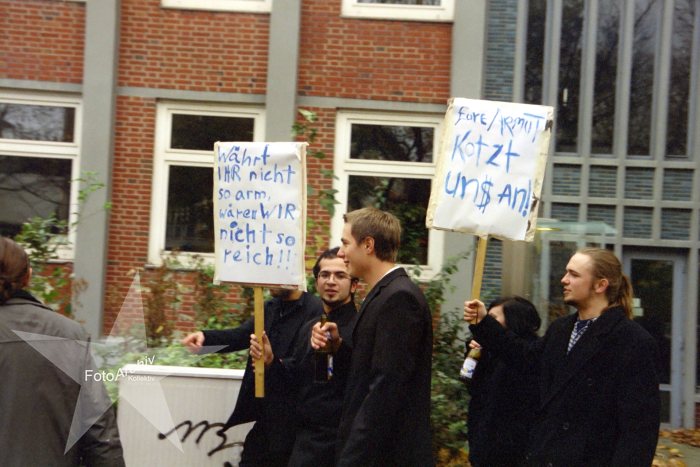 Währt
IHR nicht
so arm,
wären WIR
nicht so
reich!!!
Eure/ARMUT
Kotzt
un$ An!
© Foto Archiv Kollektiv
FotoArchiv
Kollektiv